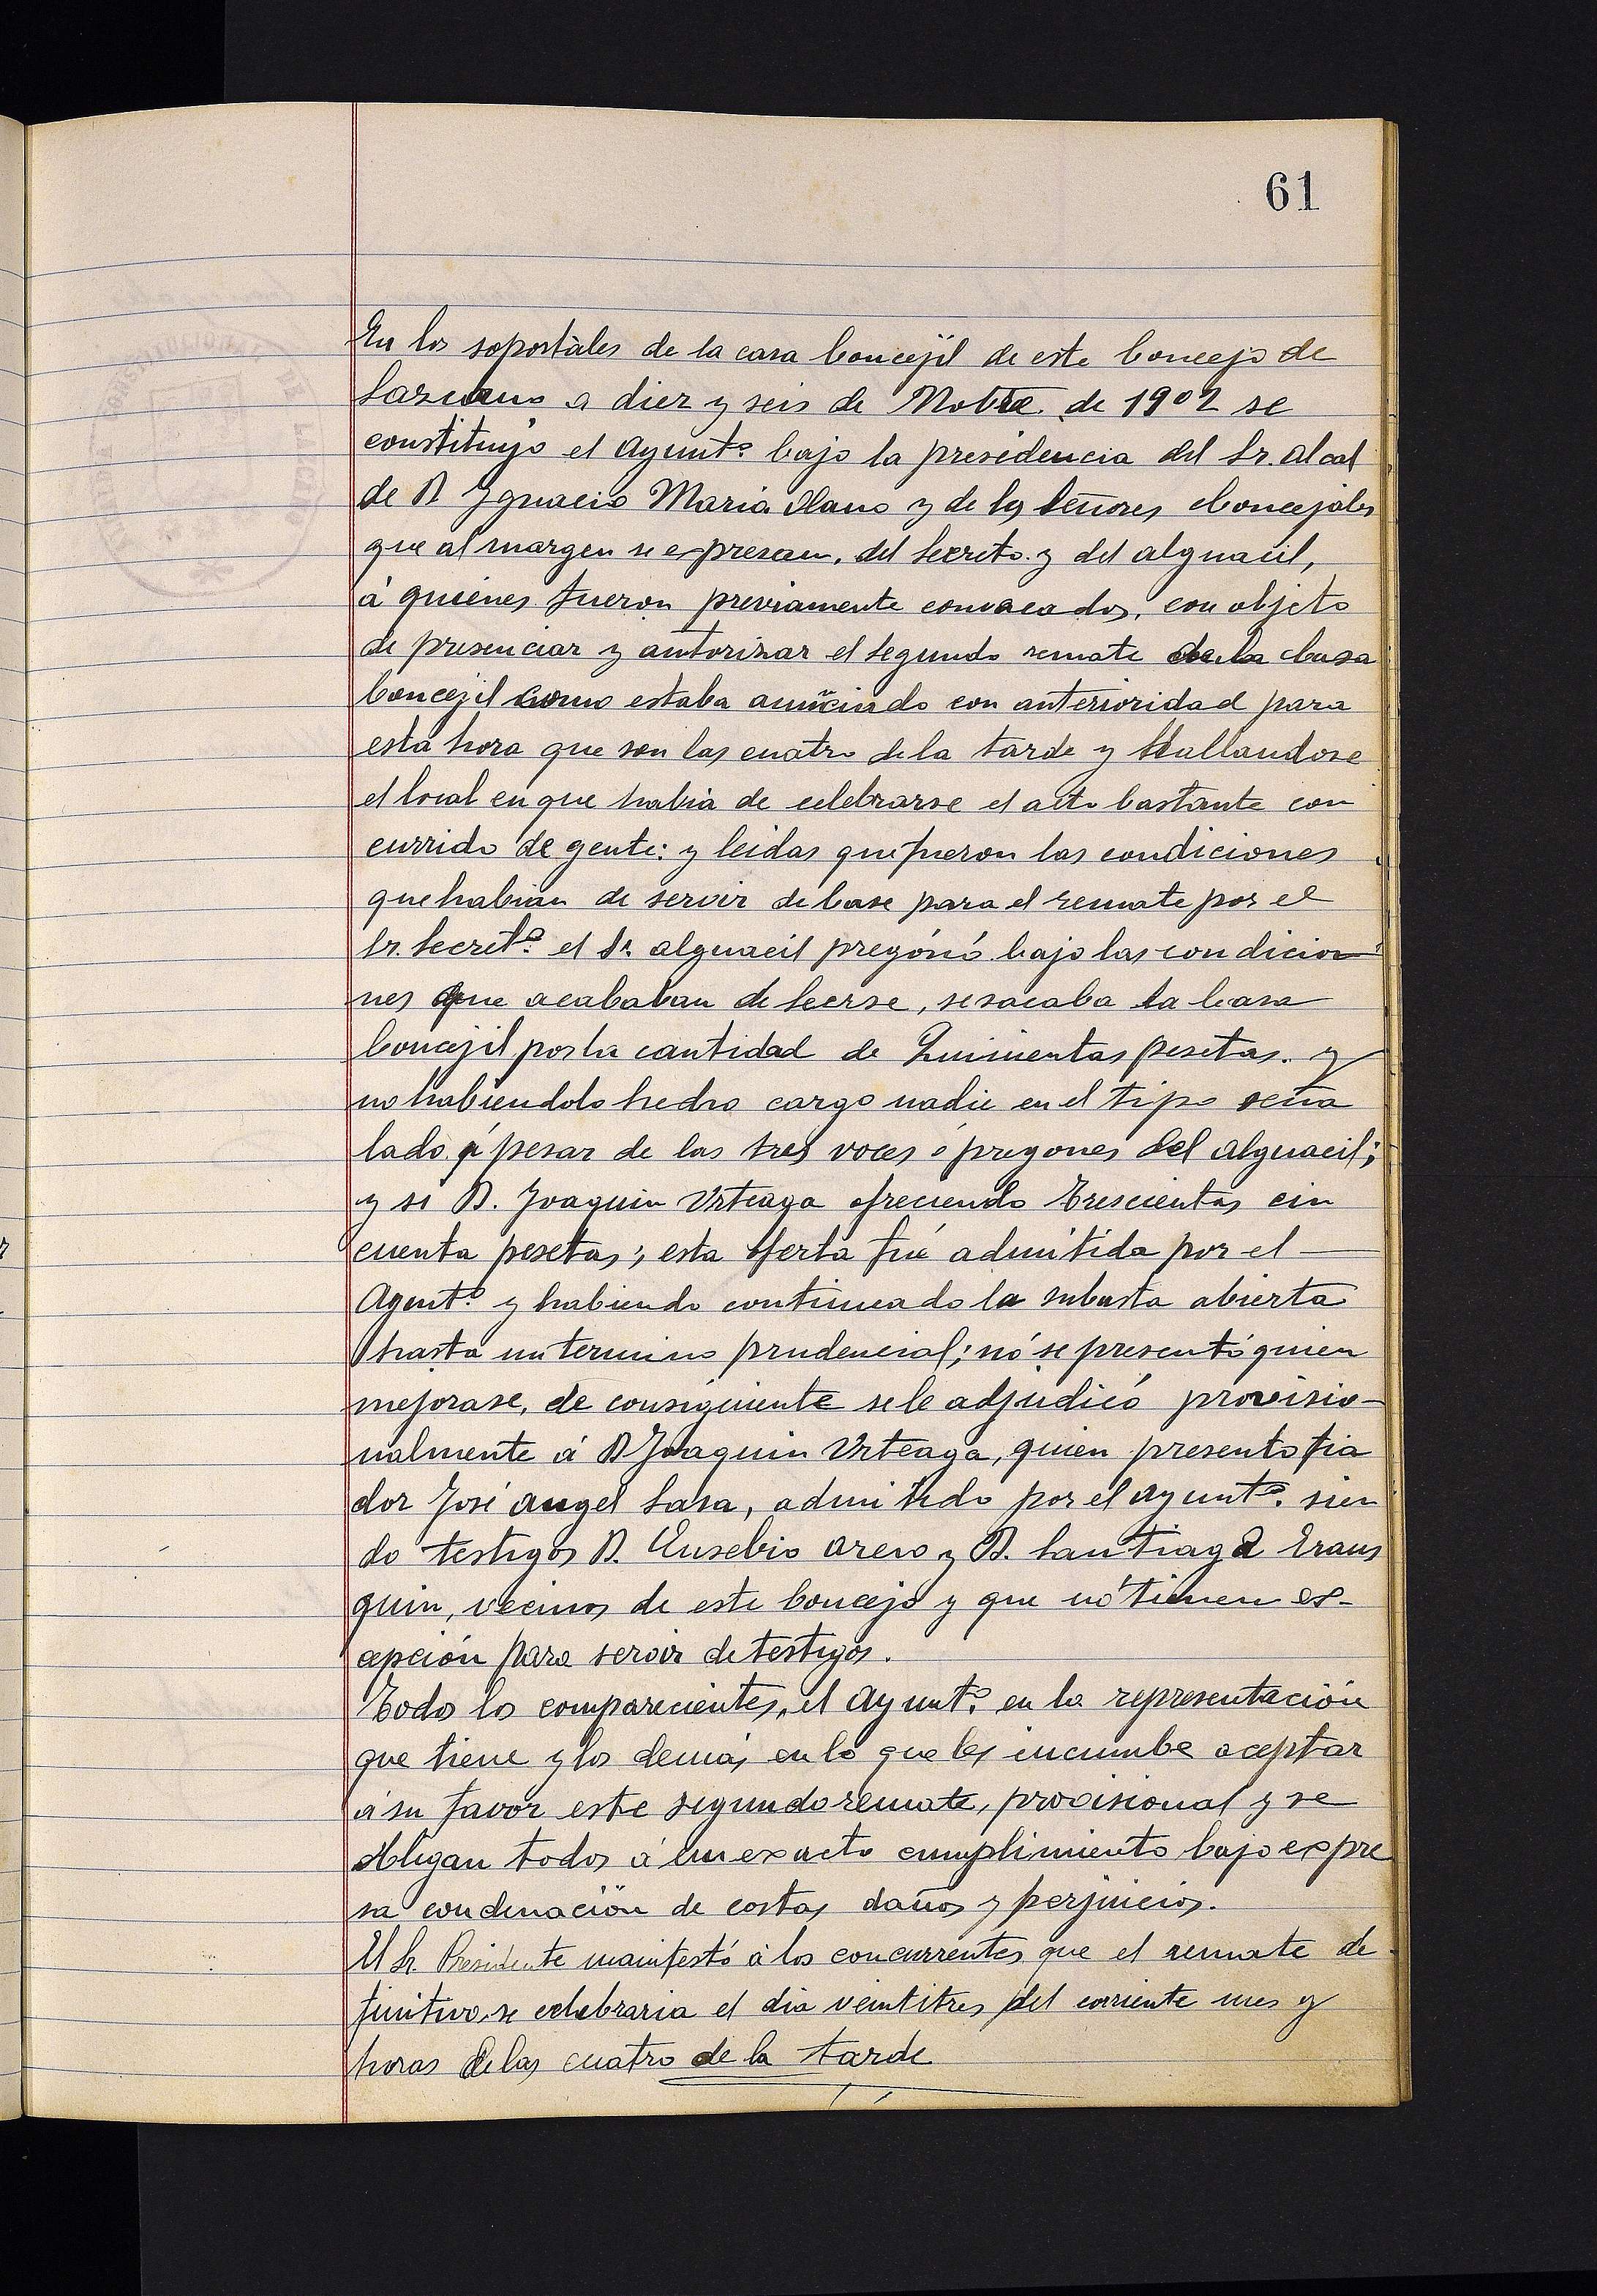 61
En los soportáles de la casa Concejil de este Concejo de
Lazcano a diez y seis de Nobre. de 1902 se
constituyo el Ayuntº bajo la presidencia del Sr. Alcal
de D. Ygnacio Maria Olano y de los Señores Concejales
que al margen se expresan, del Secretº y del alguacil,
á quienes fueron previamente convocados, con objeto
de presenciar y autorizar el segundo remate de la Casa
Concejil como estaba anunciado con anterioridad para
esta hora que son las cuatro de la tarde y Hallandose
el local en que habia de celebrarse el acto bastante con
currido de gente: y leidas que fueron las condiciones
que habian de servir de base para el remate por el
Sr. Secretº el Sr. alguacil pregónó bajo las condicion
nes que acababan de leerse, se sacaba la Casa
Concejil por la cantidad de Quinientas pesetas. y
no habiendolo hecho cargo nadie en el tipo seña
lado á pesar de las tres voces ó pregones del alguacil;
y si D. Joaquin Urteaga ofreciendo Trescientas cin
cuenta pesetas; esta oferta fué admitida por el
Ayuntº y habiendo continuado la subasta abierta
hasta un termino prudencial; nó se presentó quien
mejorase, de consiguiente se le adjudicó provisio-
nalmente á D Joaquin Urteaga, quien presento fia
dor José Angel Sasa, admitido por el Ayuntº. sien
do testigos D. Eusebio Areso y D. Santiago Eraus
quin, vecinos de este Concejo y que nó tienen es-
cepción para servir de testigos.
Todo los comparecientes, el Ayuntº en la representación
que tiene y los demás en lo que les incumbe aceptar
á su favor este segundo remate, provisional y se
obligan todos á su exacto cumplimiento bajo expre
sa condenación de costas daños y perjuicios.
El Sr. Presidente manifestó á los concurrentes que el remate de
finitivo se celebraria el dia veintitres del corriente mes y
horas de las cuatro de la tarde